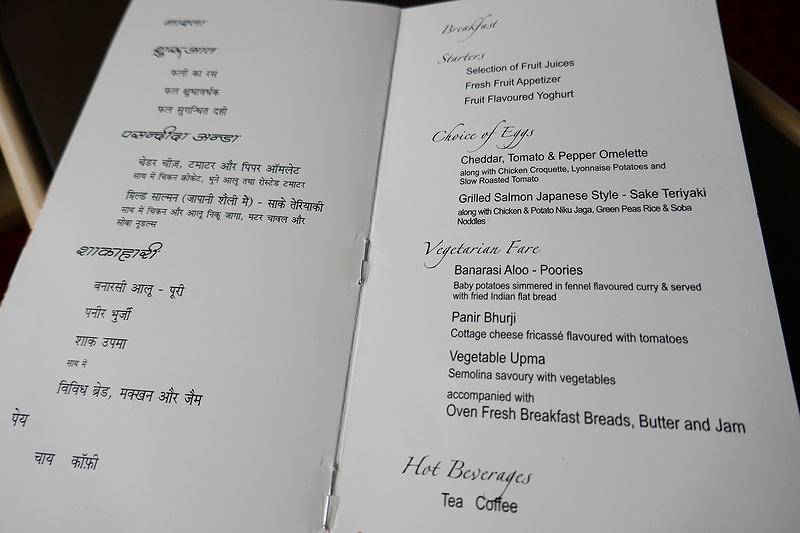 नाश्ता
शुरूआत
फलों का रस
फल क्षुधावर्धक
फल सुगन्धित दही
पसन्दीदा अन्डा
चेडर चीज़, टमाटर और पिपर ऑमलेट
साथ में चिकन क्रोकेट, भुने आलू तथा रोस्टेड टमाटर
ग्रिल्ड साल्मन (जापानी शैली में) - साके तेरियाकी
साथ में चिकन और आलू निकू जागा, मटर चावल और
सोबा नूडल्स
शाकाहारी
बनारसी आलू - पूरी
पनीर भुर्जी
शाक उपमा
साथ में
विविध ब्रेड, मक्खन और जैम
पेय
चाय कॉफ़ी
Breakfast
Starters
Selection of Fruit Juices
Fresh Fruit Appetizer
Fruit Flavoured Yoghurt
Choice of Eggs
Cheddar, Tomato & Pepper Omelette
along with Chicken Croquette, Lyonnaise Potatoes and
Slow Roasted Tomato
Grilled Salmon Japanese Style - Sake Teriyaki
along with Chicken & Potato Niku Jaga, Green Peas Rice & Soba
Noddles
Vegetarian Fare
Banarasi Aloo - Poories
Baby potatoes simmered in fennel flavoured curry & served
with fried Indian flat bread
Panir Bhurji
Cottage cheese fricassé flavoured with tomatoes
Vegetable Upma
Semolina savoury with vegetables
accompanied with
Oven Fresh Breakfast Breads, Butter and Jam
Hot Beverages
Tea Coffee